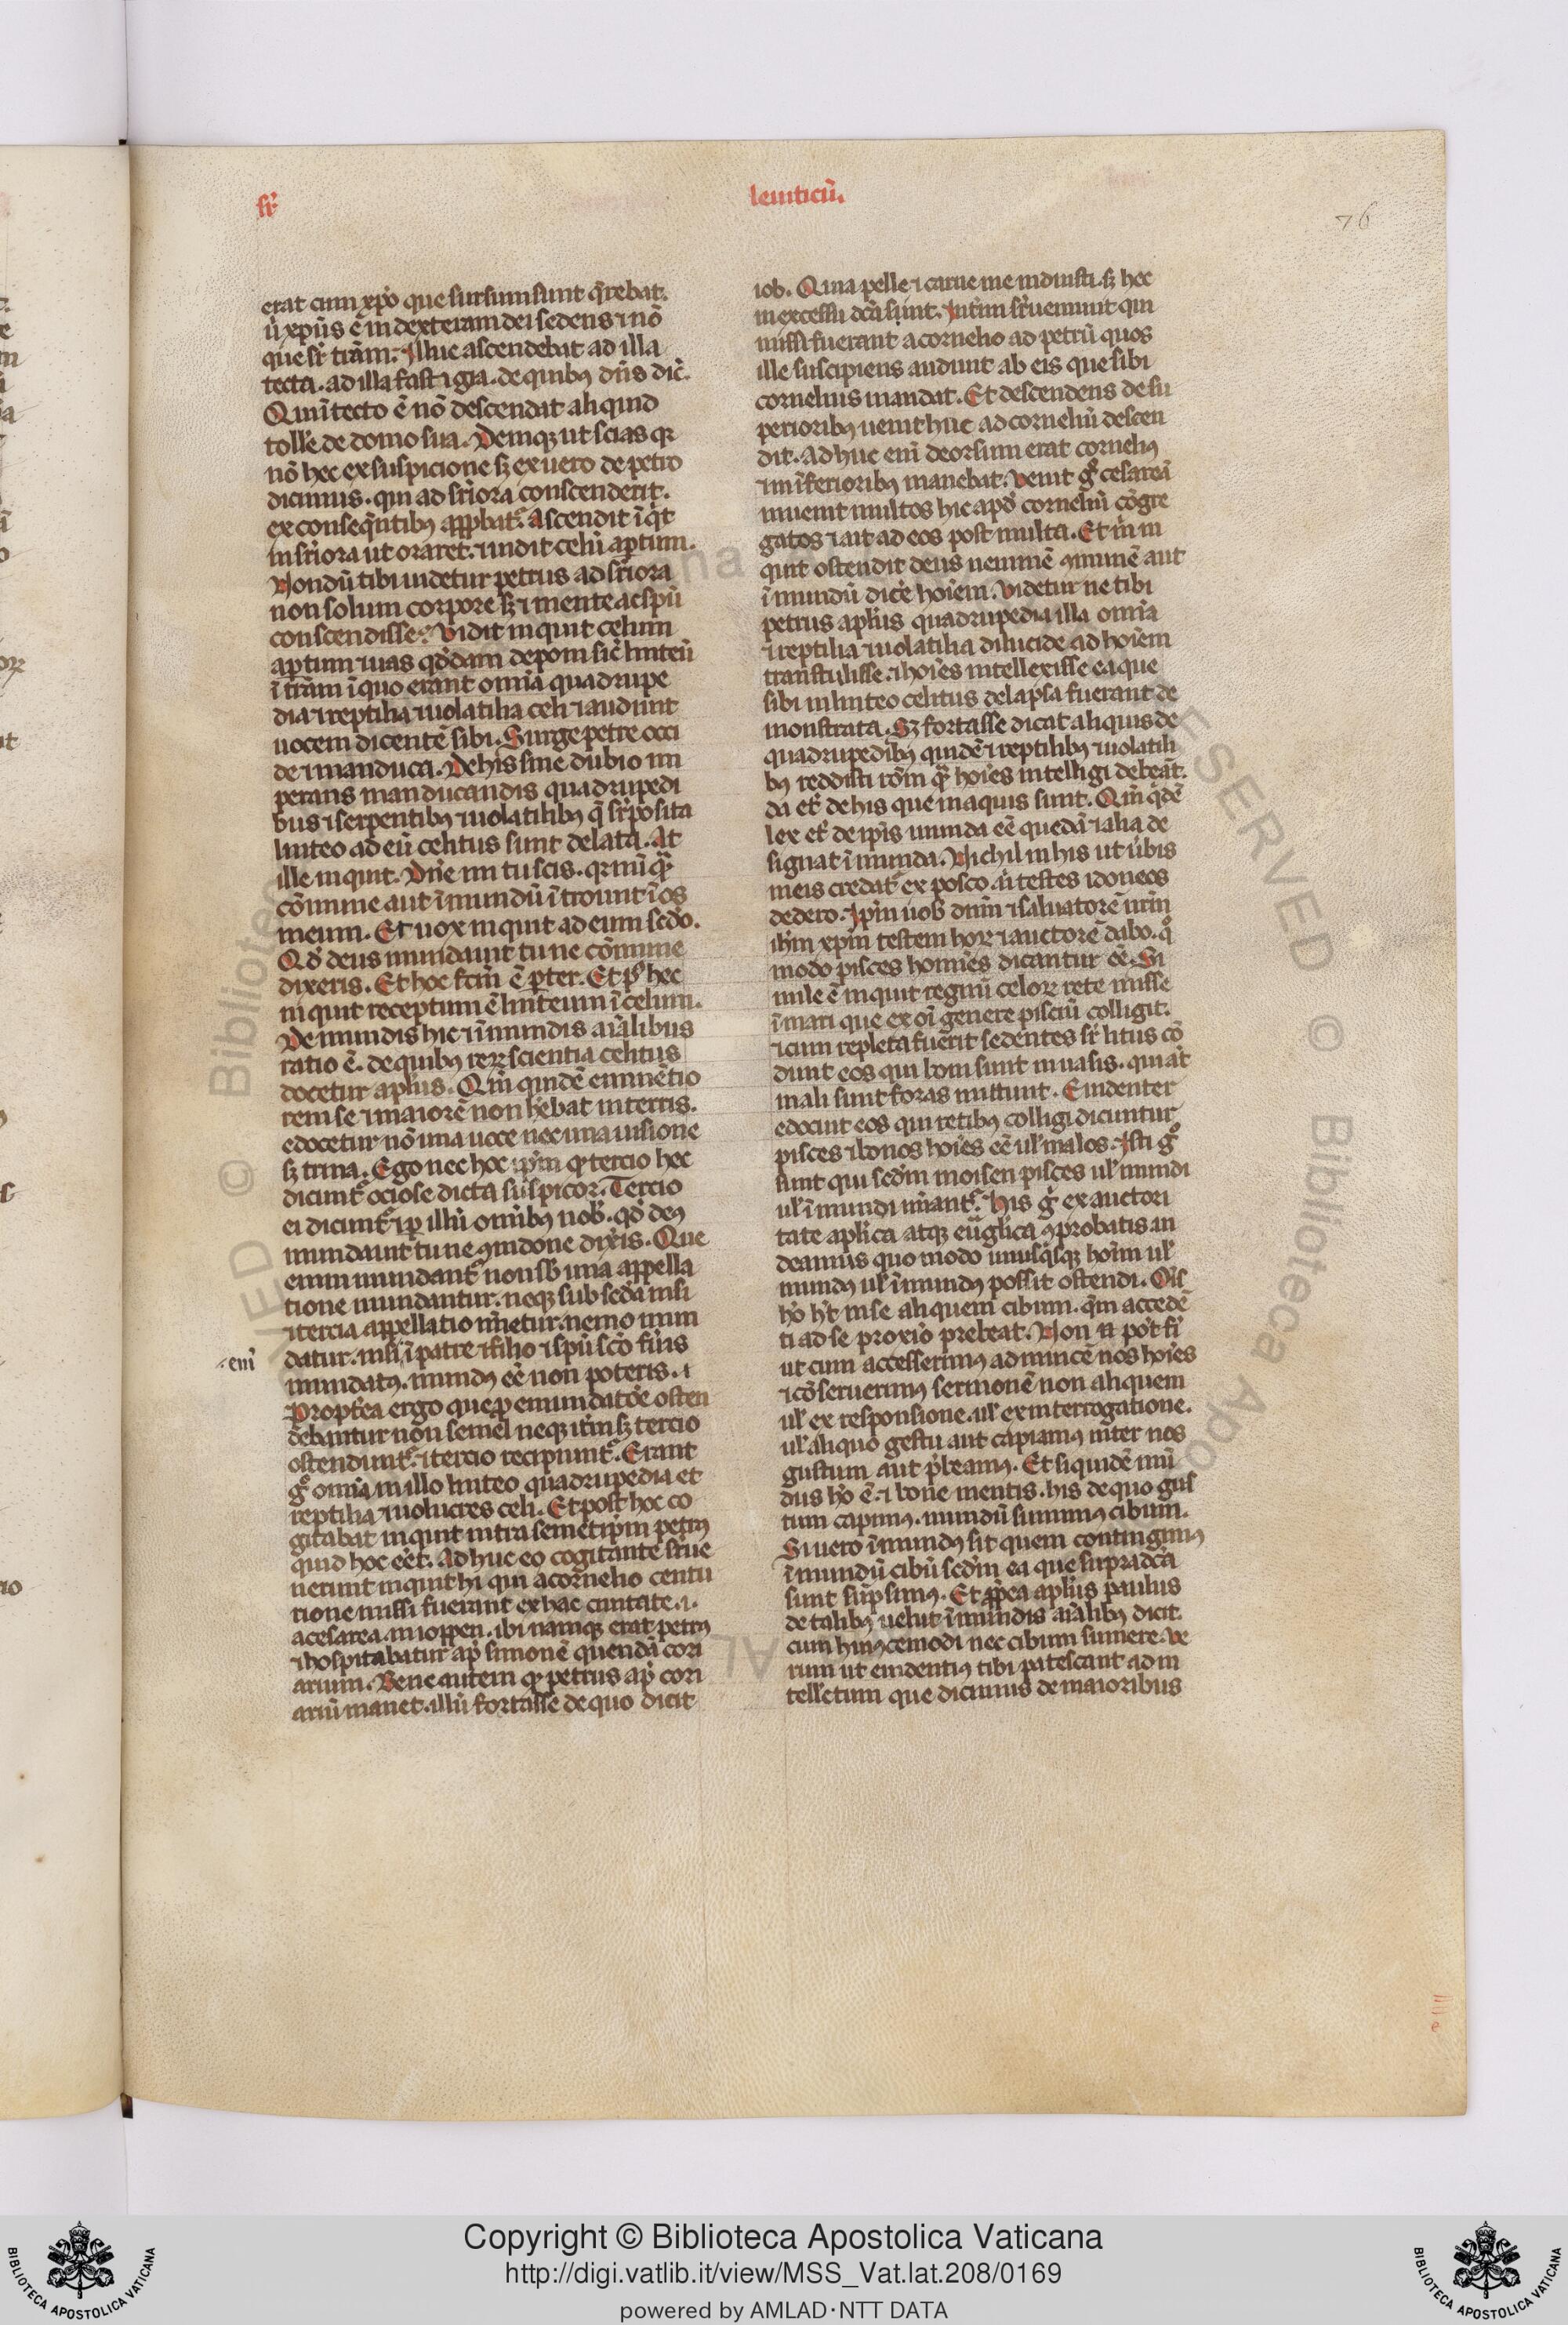 sr̄
leuiticū.
76
erat cum xp̄o que sursum sunt q̄rebat.
ù xp̄us ē in dexteram dei sedens ⁊ nō
que sr̄ trām. Illuc ascendebat ad illa
tecta. ad illa fastigia. de quibꝰ dn̄s dic̄.
Qui ī tecto ē nō descendat aliquid
toll'e de domo sua. Deniqꝫ ut scias qꝛ
nō hec ex suspicione sꝫ ex uero de petro
dicimus. qui ad sr̄iora conscenderit.
ex conseq̄ntibꝰ app̱bat᷑. Ascendit īq̇t
in sr̄iora ut oraret. ⁊ uidit celū aꝑtum.
Nondū tibi uidetur petrus ad sr̄iora
non solum corpore sꝫ ⁊ mente ac sp̄u
conscendisse. Vidit inquit celum
aꝑtum ⁊ uas qd̄dam deponi sic̄ linteū
ī trām ī quo erant omīa quadrupe
dia ⁊ reptilia ⁊ uolatilia celi ⁊ audiuit
uocem dicentē sibi. Surge petre occi
de ⁊ manduca. De his sine dubio im
perans manducandis quadrupedi
bus ⁊ serpentibꝰ ⁊ uolatilibꝰ q̄ sr̄posita
linteo ad eū celitus sunt delata. At
ille inquit. Dn̄e nu tu scis. qꝛ nūq̄
cōmune aut īmundū ītrouit ī os
meum. Et uox inquit ad eum sed̄o.
Qd̄ deus mundauit tu ne cōmune
dixeris. Et hoc fcm̄ ē ꝑ ter. Et pꝰ hec
inquit receptum ē linteum ī celum.
De mundis hic ⁊ īmundis aīalibus
ratio ē. de quibꝰ reꝝ scientia celitus
docetur aplūs. Qm̄ quidē eminētio
rem se ⁊ maiorē non h̄ebat in terris.
edocetur nō una uoce nec una uisione
sꝫ trina. Ego nec hoc ip̄m qꝫ tercio hec
dicunt᷑ ociose dicta suspicor. Tercio
ei dicunt᷑ ⁊ ꝑ illū omībꝰ nob̄. qd̄ deꝰ
mundauit tu ne ꝯmūne dix̄is. Que
enim mundant᷑ non sb̄ una appella
tione mundantur. neqꝫ sub sed̄a nisi
⁊ tercia appellatio nīetur. nemo mun
datur. nisi ī patre ⁊ filio ⁊ sp̄u scō fūis
.enī
mundatꝰ. mundꝰ eē non poteris. ⁊
Propt̄ea ergo que ꝓ emundatōe osten
debantur non semel neqꝫ it̄m sꝫ tercio
ostendunt᷑. ⁊ tercio recipiunt᷑. Erant
gͦ omīa in illo linteo quadrupedia et
reptilia ⁊ uolucres celi. Et post hoc co
gitabat inquit intra semetip̄m petrꝰ
quid hoc eēt. Adhuc eo cogitante sr̄ue
nerunt inquit hi qui a cornelio centu
rione missi fuerant ex hac ciuitate .i.
a cesarea. in ioppen. ibi namqꝫ erat petrꝰ
⁊ hospitabatur ap̄ simonē quendā cori
arium. Bene autem qꝫ petrus ap̄ cori
ariū manet. illū fortasse de quo dicit
iob. Quia pelle ⁊ carne me induisti. sꝫ hec
in excessu dcā sunt. Int̄im sr̄ueniunt qui
missi fuerant a cornelio ad petrū quos
ille suscipiens audiuit ab eis que sibi
cornelius mandat. Et descendens de su
perioribꝰ uenit huc ad corneliū descen
dit. Adhuc enī deorsum erat corneliꝰ
⁊ in īferioribꝰ manebat. Venit gͦ cesareā
inuenit multos hic apd̄ corneliū cōgre
gatos ⁊ ait ad eos post multa. Et m̄ in
quit ostendit deus neminē ꝯmunē aut
īmundū dic̄e hoīem. Videtur ne tibi
petrus aplūs quadrupedia illa omīa
⁊ reptilia ⁊ uolatilia dilucide ad hoīem
transtulisse. ⁊ hoīes intellexisse ea que
sibi in linteo celitus delapsa fuerant de
monstrata. Sꝫ fortasse dicat aliquis de
quadrupedibꝰ quidē ⁊ reptilibꝰ ⁊ uolatili
bꝰ reddisti rōm qꝛ hoīes intelligi debeāt.
da et̄ de his que in aquis sunt. Qm̄ q̇dē
lex et̄ de ip̄is munda eē quedā ⁊ alia de
signat īmunda. Nichil in his ut ūbis
meis credat᷑ exposco. nī testes idoneos
dedero. Ip̄m uob̄ dn̄m ⁊ saluatorē nr̄m
ih̄m xp̄m testem hoꝝ ⁊ auctorē dabo. qͦ
modo pisces homīes dicantur eē. Si
mile ē inquit regnū celoꝝ rete misse
ī mari que ex oī genere pisciū colligit.
⁊ cum repleta fuerit sedentes sr̄ litus cō
dunt eos qui boni sunt in uasis. qui at̄
mali sunt foras mittunt. Euidenter
edocuit eos qui retibꝰ colligi dicuntur
pisces ⁊ bonos hoīes eē ul' malos. Isti gͦ
sunt qui sed̄m moisen pisces ul' mundi
ul' īmundi nīant᷑. His gͦ ex auctori
tate aplīca atqꝫ euāglica ꝯprobatis ui
deamus quomodo unusq̇sqꝫ hoīm ul'
mundꝰ ul' īmundꝰ possit ostendi. Oīs
hō h̄t in se aliquem cibum. q̄m accedē
ti ad se proxīo prebeat. Non n̄ pōt fī
ut cum accesserimꝰ ad inuicē nos hoīes
⁊ cōseruerimꝰ sermonē non aliquem
ul' ex responsione. ul' ex interrogatione.
ul' aliquo gestu aut capiamꝰ inter nos
gustum aut p̄beamꝰ. Et siquidē mū
dus hō ē. ⁊ bone mentis. his de quo gus
tum capimꝰ. mundū sumimꝰ cibum.
Si uero īmundꝰ sit quem contingimꝰ
īmundū cibū sed̄m ea que supradcā
sunt sūpsimꝰ. Et ꝓp̄ea aplūs paulus
de talibꝰ uelut īmundis aīalibꝰ dicit.
cum hiuꝰcemodi nec cibum sumere. Ve
rum ut euidentiꝰ tibi patescant ad in
tell'etum que dicimus de maioribus
Copyright © Biblioteca Apostolica Vaticana
http://digi.vatlib.it/view/MSS_Vat.lat.208/0169
powered by AMLAD·NTT DATA